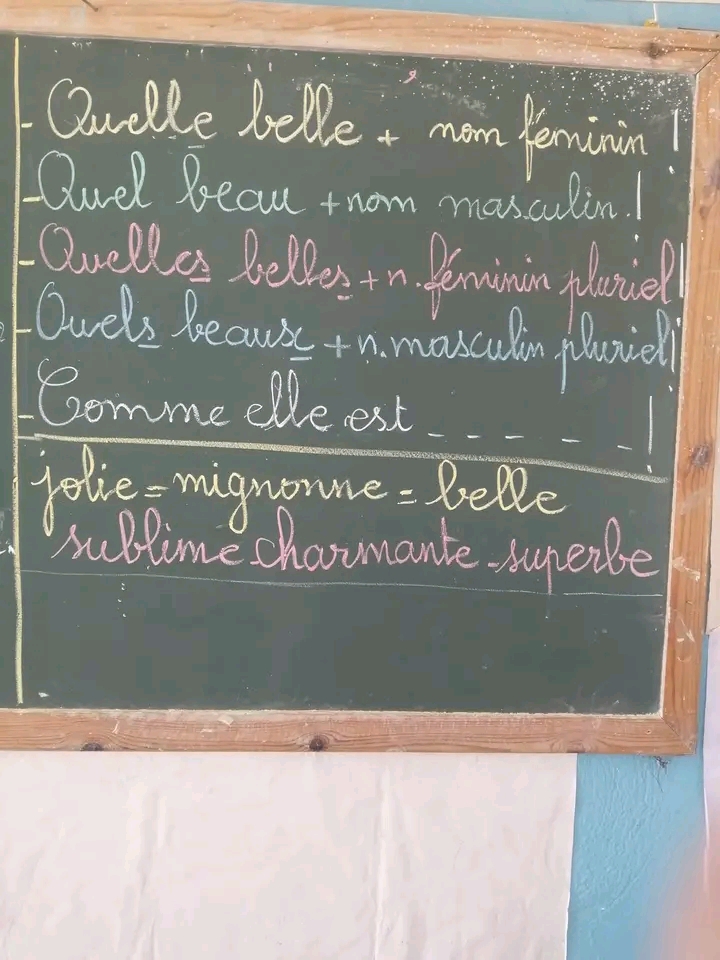 - Quelle belle + nom féminin !
- Quel beau + nom masculin !
- Quelles belles + n. féminin pluriel !
- Quels beaux + n. masculin pluriel !
- Comme elle est _ _ _ _ _ !
jolie = mignonne = belle
sublime - charmante - superbe